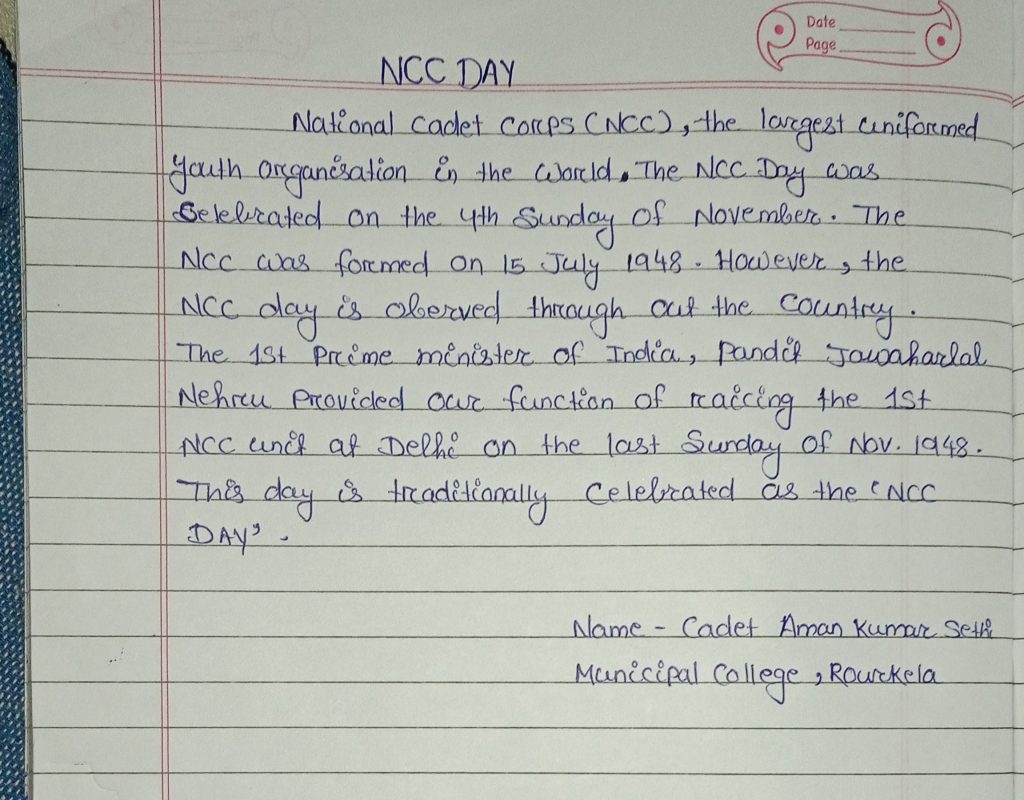 Date
Page
NCC DAY
National Cadet Corps (NCC), the largest uniformed
youth organisation in the world. The NCC Day was
Selebrated on the 4th Sunday of November. The
NCC was formed on 15 July 1948. However, the
NCC day is oberved through out the country.
The 1st Prime minister of India, Pandit Jawaharlal
Nehru Provided our function of raicing the 1st
NCC unit at Delhi on the last Sunday of Nov. 1948.
This day is traditionally Celebrated as the 'NCC
DAY'.
Name - Cadet Aman Kumar Sethi
Municipal College, Rourkela